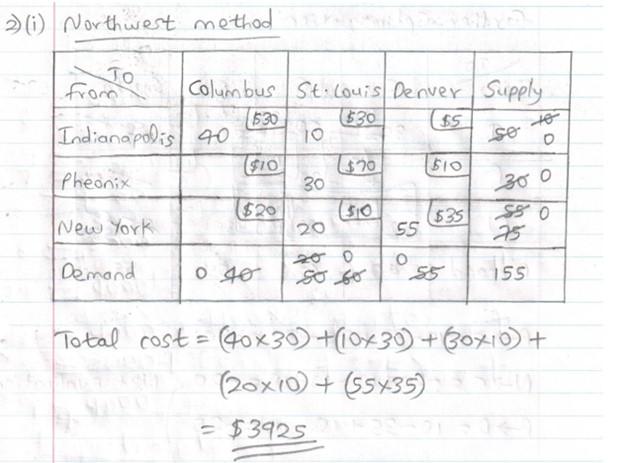 2)(i) Northwest method
TO
From Columbus St. Louis Denver Supply
Indianapolis 40 $30 10 $30 $5 50 10 0
Pheonix $10 30 $70 $10 30 0
New York $20 20 $10 55 $35 75 55 0
Demand 0 40 20 0 50 60 0 55 155
Total cost = (40x30) + (10x30) + (30x10) +
(20x10) + (55x35)
= $3925